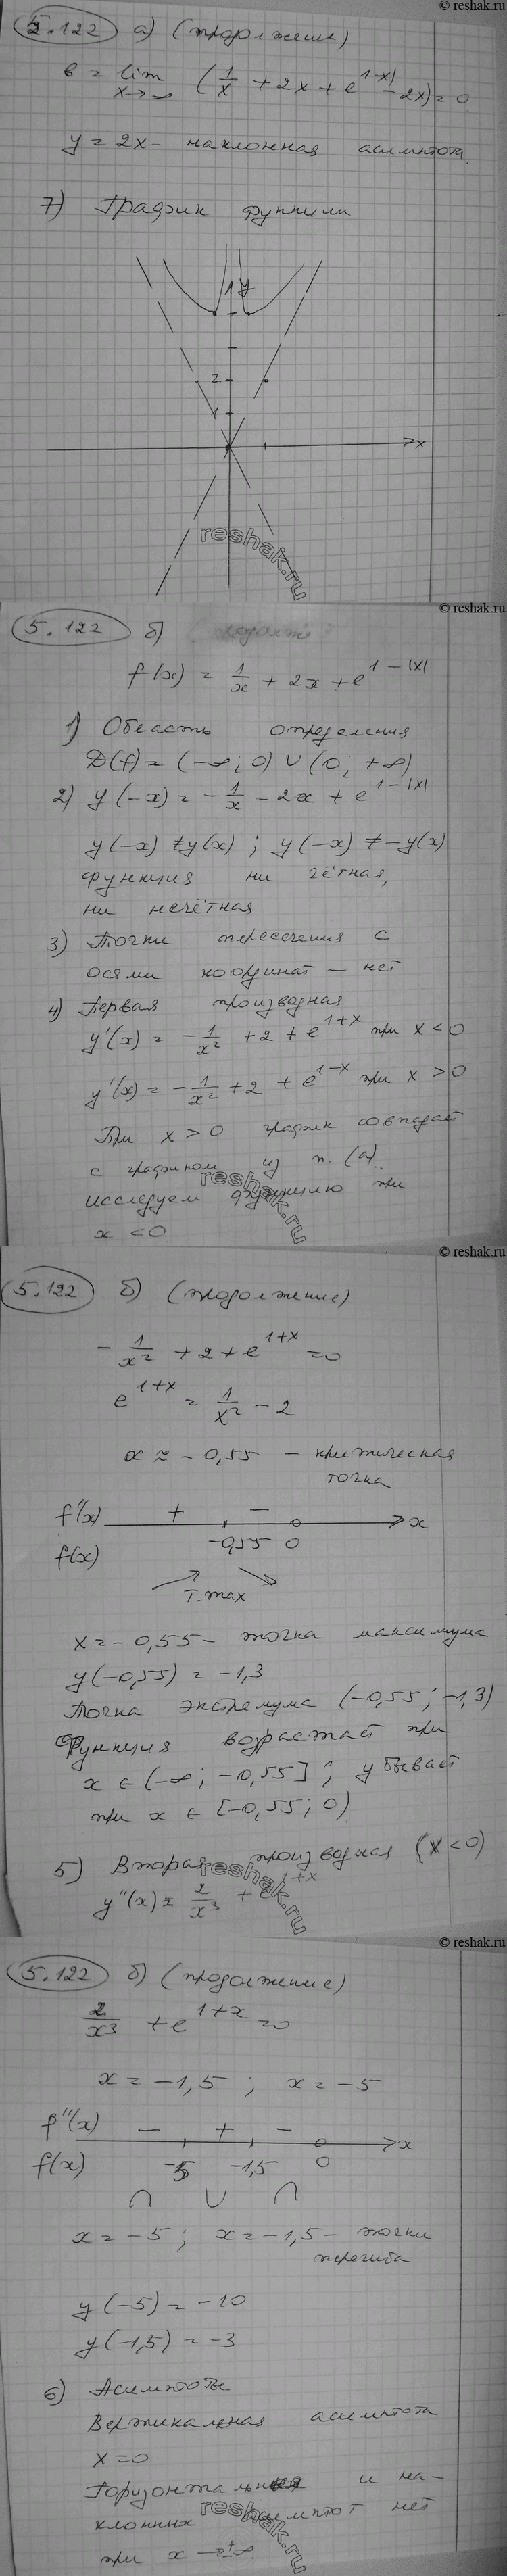 © reshak.ru
5.122 а) (продолжение)
b = lim x→∞ (1/x + 2x + e^(1-x) - 2x) = 0
y = 2x - наклонная асимптота.
7) График функции
y
2
1
x
reshak.ru
© reshak.ru
5.122 б)
f(x) = 1/x + 2x + e^(1-|x|)
1) Область определения
D(f) = (-∞; 0) ∪ (0; +∞)
2) y(-x) = -1/x - 2x + e^(1-|x|)
y(-x) ≠ y(x) ; y(-x) ≠ -y(x)
функция ни чётная,
ни нечётная
3) Точки пересечения с
осями координат - нет
4) Первая производная
y'(x) = -1/x² + 2 + e^(1+x) при x < 0
y'(x) = -1/x² + 2 + e^(1-x) при x > 0
При x > 0 график совпадает
с графиком из п. (а).
исследуем функцию при
x < 0
reshak.ru
© reshak.ru
5.122 б) (продолжение)
-1/x² + 2 + e^(1+x) = 0
e^(1+x) = 1/x² - 2
x ≈ -0,55 - критическая
точка
f'(x) + - x
f(x) -0,55 0
т. max
x = -0,55 - точка максимума
y(-0,55) = -1,3
Точка экстремума (-0,55; -1,3)
Функция возрастает при
x ∈ (-∞; -0,55]; убывает
при x ∈ [-0,55; 0)
5) Вторая производная (x < 0)
y''(x) = 2/x³ + e^(1+x)
reshak.ru
© reshak.ru
5.122 б) (продолжение)
2/x³ + e^(1+x) = 0
x = -1,5 ; x = -5
f''(x) - + - x
f(x) -5 -1,5 0
∩ ∪ ∩
x = -5; x = -1,5 - точки
перегиба
y(-5) = -10
y(-1,5) = -3
6) Асимптоты
Вертикальная асимптота
x = 0
Горизонтальных и на-
клонных асимптот нет
при x → ±∞.
reshak.ru